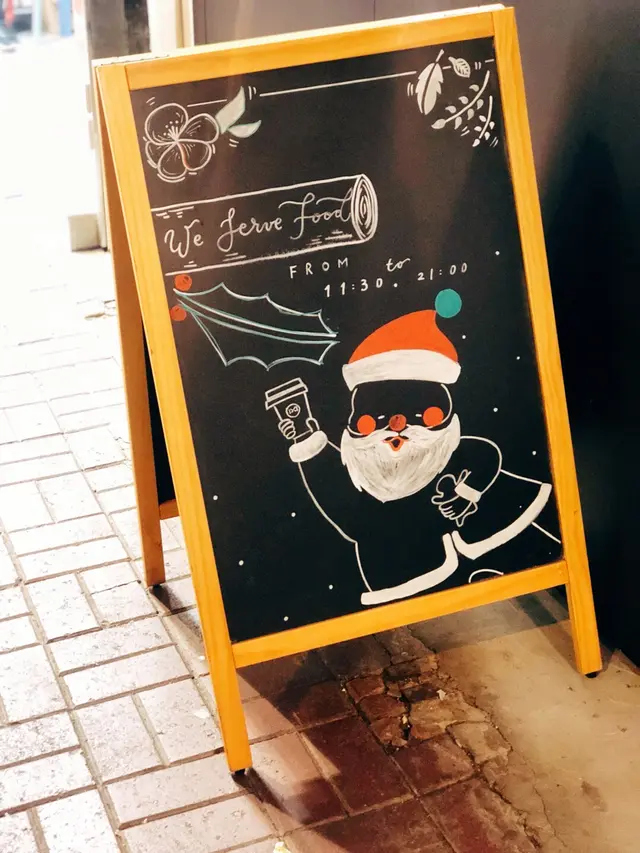 We Serve Food
FROM to
11:30. 21:00